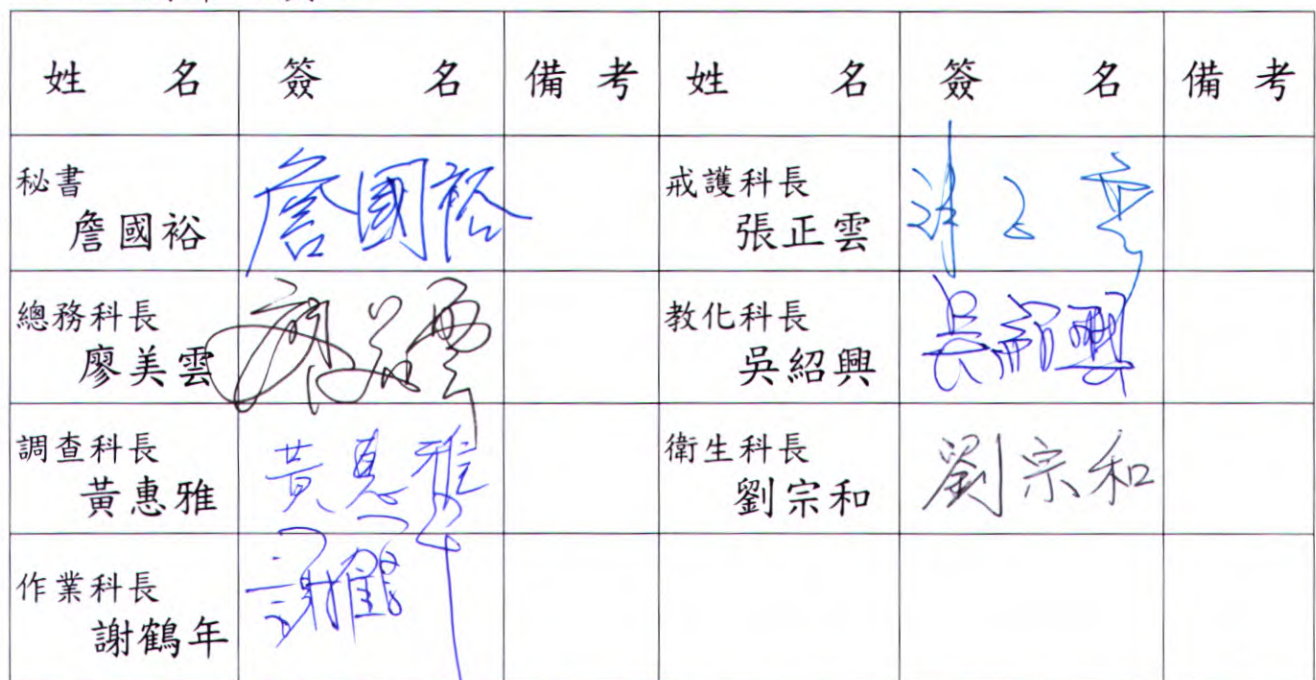 姓 名 簽 名 備 考 姓 名 簽 名 備 考
秘書
詹國裕 詹國裕
戒護科長
張正雲 張正雲
總務科長
廖美雲 廖美雲
教化科長
吳紹興 吳紹興
調查科長
黃惠雅 黃惠雅
衛生科長
劉宗和 劉宗和
作業科長
謝鶴年 謝鶴年